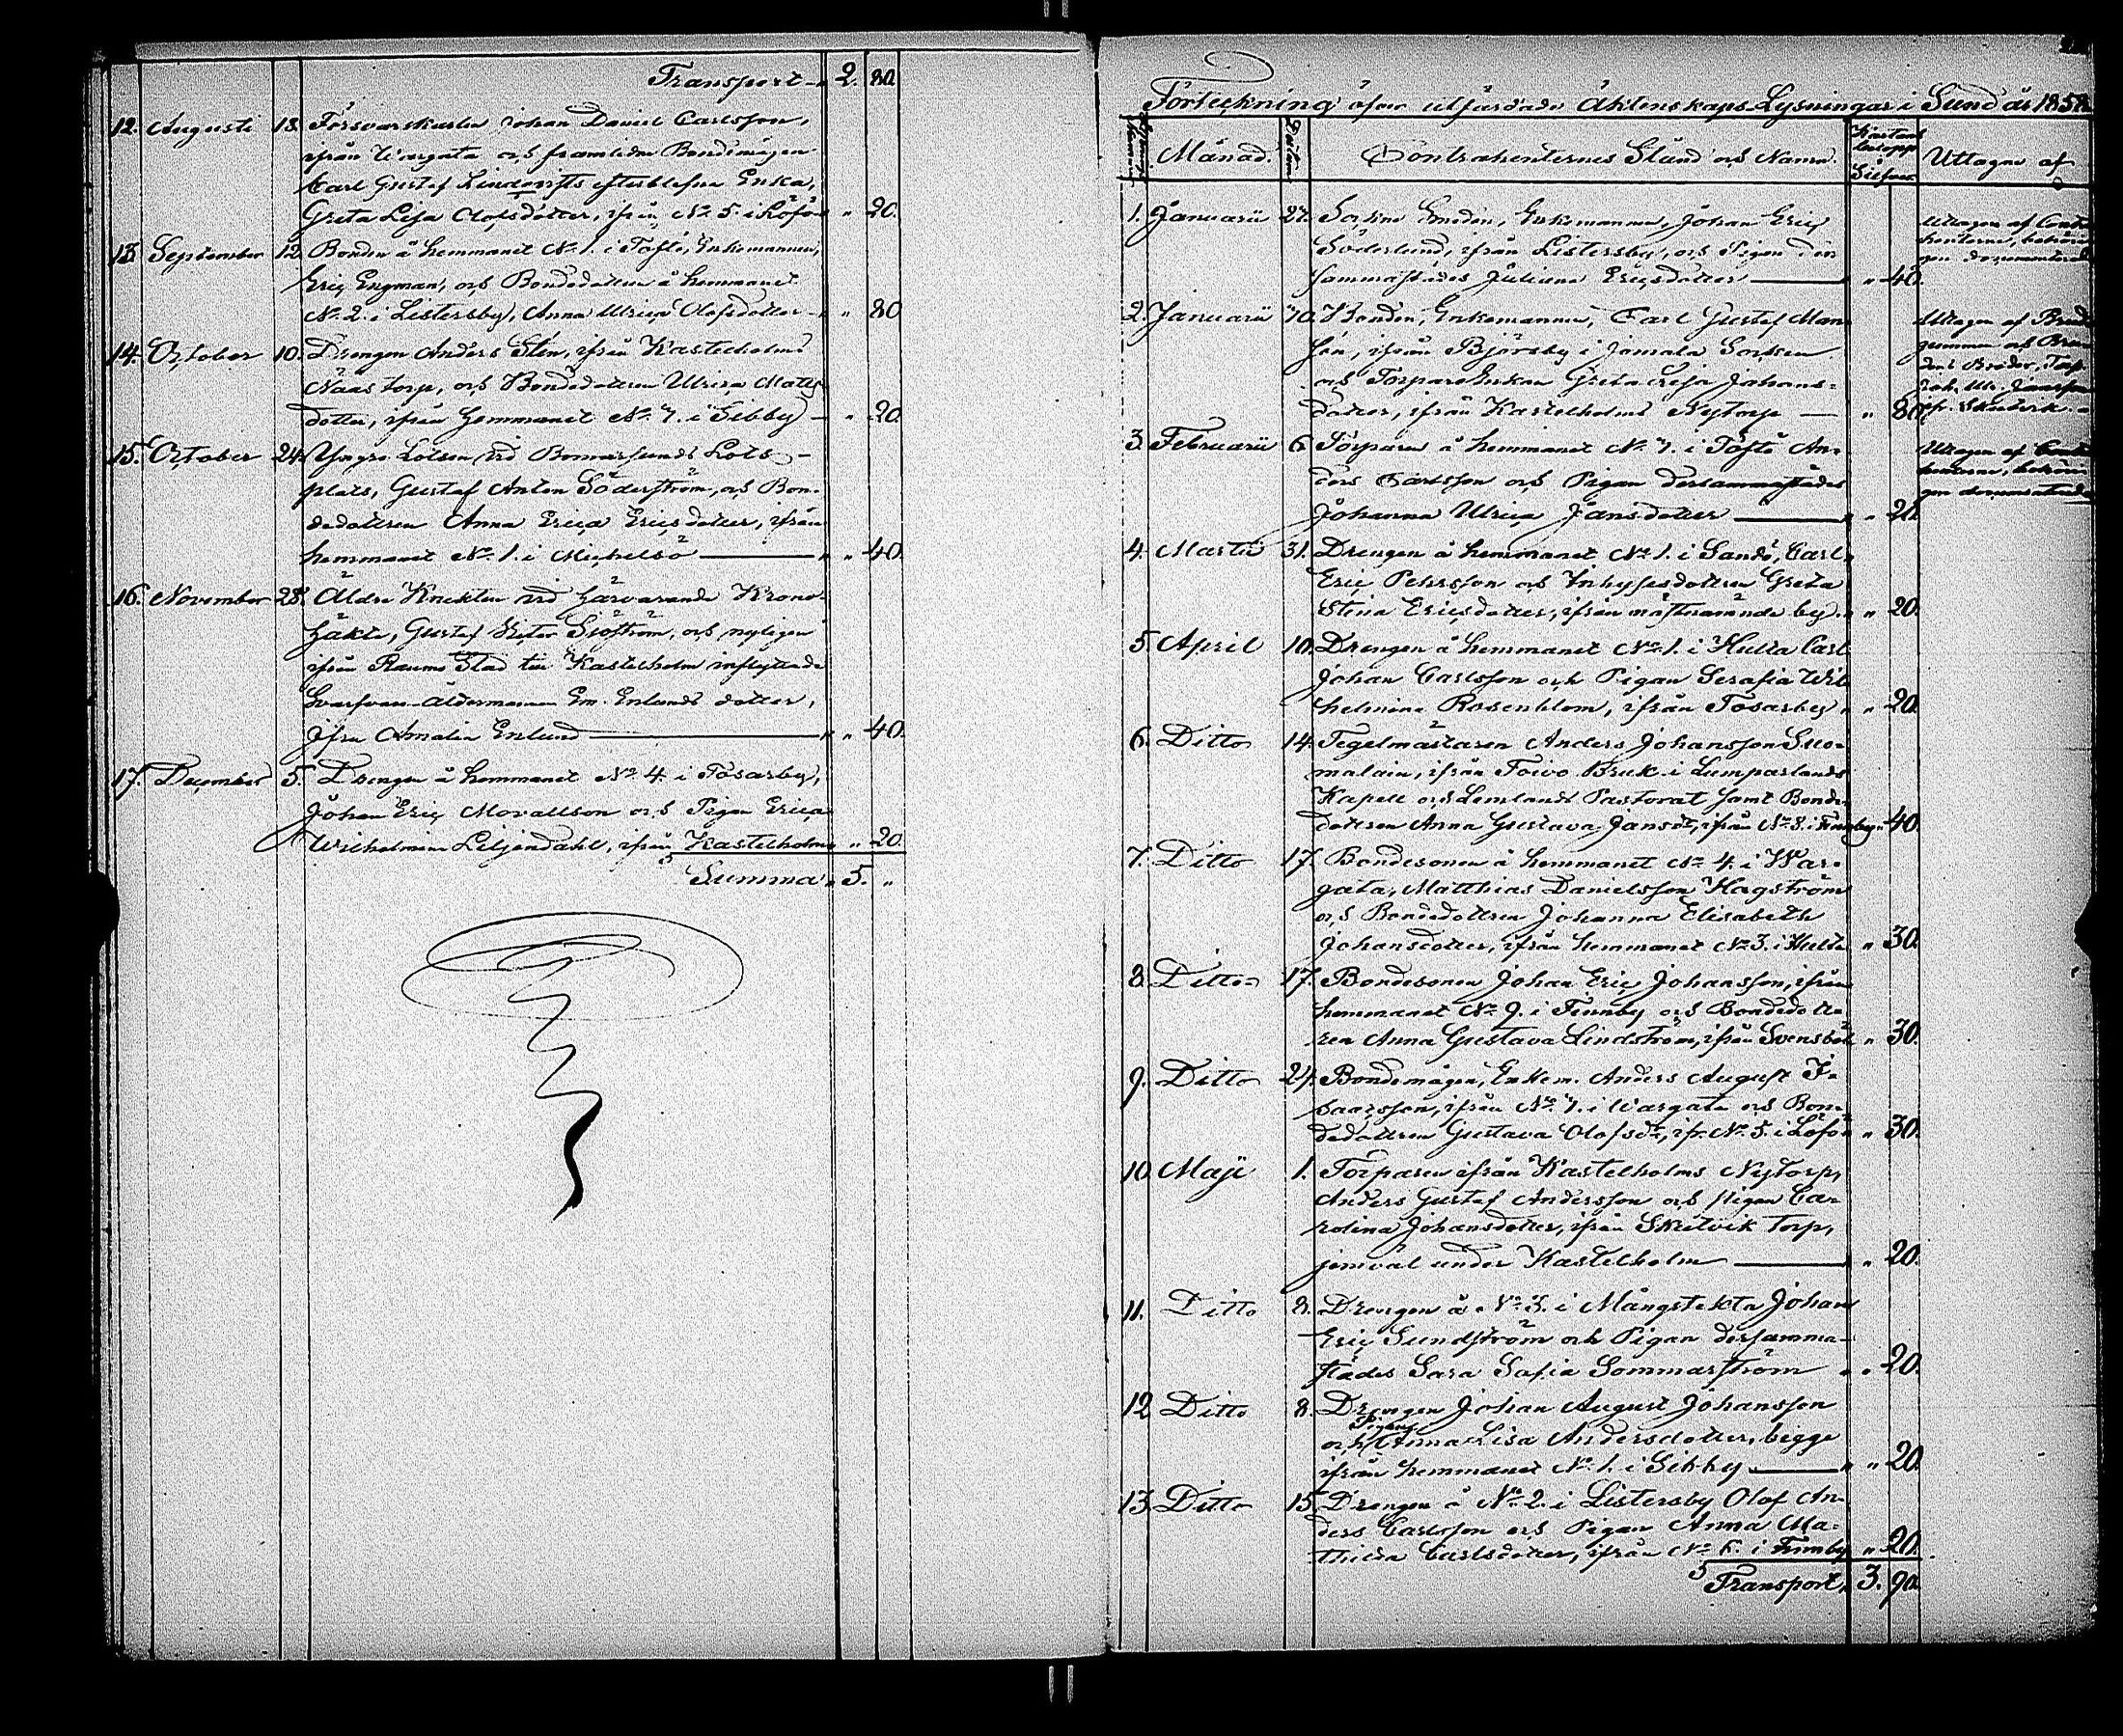 Transport 2. 80.
12. Augusti 18. Försvarskarlen Johan Daniel Carlsson,
ifrån Wargata och framledne Bondemågen
Carl Gustaf efterblefna Enka,
Greta Lisa Olofsdotter, ifrån No 5. i Löfö " 20.
13. September 12. Bonden å hemmanet No 1. i Töftö, Enkemannen,
Eric Engman, och Bondedottren å hemmanet
No 2. i Listersby, Anna Ulrica Olofsdotter " 80
14. October 10. Drengen Anders Sten, ifrån Kastelholms
Näas torp, och Bondedottren Ulrica Matts
dotter, ifrån hemmanet No 7. i Gibby " 20.
15. October 24. Yngre Lotsen vid Bomarsunds Lots-
plats, Gustaf Anton Söderström, och Bon-
dedottren Anna Erica Ericsdotter, ifrån
hemmanet No 1. i Michelsö " 40.
16. November 28. Äldre Knekten vid härvarande Krono
häkte, Gustaf Victor Sjöström, och nyligen
ifrån Raumo Stad till Kastelholm inflyttade
Svarfvare-åldermannen Em. Enlunds dotter,
Jfru Amalia Enlund " 40.
17. December 5. Drengen å hemmanet No 4. i Tosarby,
Johan Eric Morallson och Pigan Erica
Wilhelmina Liljendahl, ifrån Kastelholm " 20.
Summa 5. "
Förteckning öfver utfärdade Äktenskaps Lysningar i Sund år 1858.
Månad. Datum Contrahenternes Stånd och Namn. Silfver. Uttagne af
1. Januarii 27. Sockne Smeden, Enkemannen, Johan Eric
Söderlund, ifrån Listersby, och Pigan der
sammastädes Juliana Ericsdotter " 40.
Uttagen af Contra
henterne, betrom
gen documenterad
2. Januarii 30. Bonden, Enkemannen, Carl Gustaf Man
son, ifrån Björsby i Jomala Socken
och TorpareEnkan Greta Lisa Johans-
dotter, ifrån Kastelholms Nytorp " 80.
Uttagen af Brud
gummen och Bru
dens Broder, Torp.
Joh. Ulr. Jansson
fr. Skutvik.
3. Februarii 6. Torparen å hemmanet No 7. i Töftö An-
ders Carlsson och Pigan dersammastädes
Johanna Ulrica Jansdotter " 20.
Uttagen af Contra
henterne, betrom
gen documenterad
4. Martii 31. Drengen å hemmanet No 1. i Sandö, Carl
Eric Pehrsson och Inhysesdottren Greta
Stina Ericsdotter, ifrån nästnämnde by. " 20.
5. April 10. Drengen å hemmanet No 1. i Hulta Carl
Johan Carlsson och Pigan Serafia Wil
helmina Rosenblom, ifrån Tosarby " 20.
6. Ditto 14. Tegelmästaren Anders Johansson Suo-
malain, ifrån Toivo Bruk i Lumparlands
Kapell och Lemlands Pastorat samt Bonde-
dottren Anna Gustava Jansdr, ifrån No 8. i Finnby " 40.
7. Ditto 17. Bondesonen å hemmanet No 4. i War-
gata, Matthias Danielsson Hagström
och Bondedottren Johanna Elisabeth
Johansdotter, ifrån hemmanet No 3. i Hulta " 30.
8. Ditto 17. Bondesonen Johan Eric Johansson, ifrån
hemmanet No 9. i Finnby och Bondedott-
ren Anna Gustava Lindström, ifrån Svensböl " 30.
9. Ditto 24. Bondemågen, Enkem. Anders August I-
saacsson, ifrån No 7. i Wargata och Bon-
dedottren Gustava Olofsdr, ifr. No 5. i Löfö " 30.
10. Maji 1. Torparen ifrån Kastelholms Nytorp,
Anders Gustaf Andersson och pigan Ca-
rolina Johansdotter, ifrån Skutvik Torp,
jemväl under Kastelholm " 20.
11. Ditto 8. Drengen å No 3. i Mångstekta Johan
Eric Sundström och Pigan dersamma-
städes Sara Sofia Sommarström " 20.
12. Ditto 8. Drengen Johan August Johansson
och Pigan Anna Lisa Andersdotter, begge
ifrån hemmanet No 1. i Gibby " 20.
13. Ditto 15. Drengen å No 2. i Listersby Olof An-
ders Carlsson och Pigan Anna Ma-
thilda Carlsdotter, ifrån No 6. i Finnby " 20.
Transport, 3. 90.